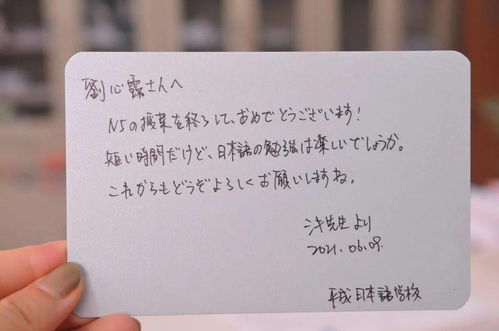 劉心露さんへ
N5の授業を終了して、おめでとうございます!
短い時間だけど、日本語の勉強は楽しいでしょうか。
これからもどうぞよろしくお願いしますね。
シキ先生より
2021.06.09.
平成日本語学校